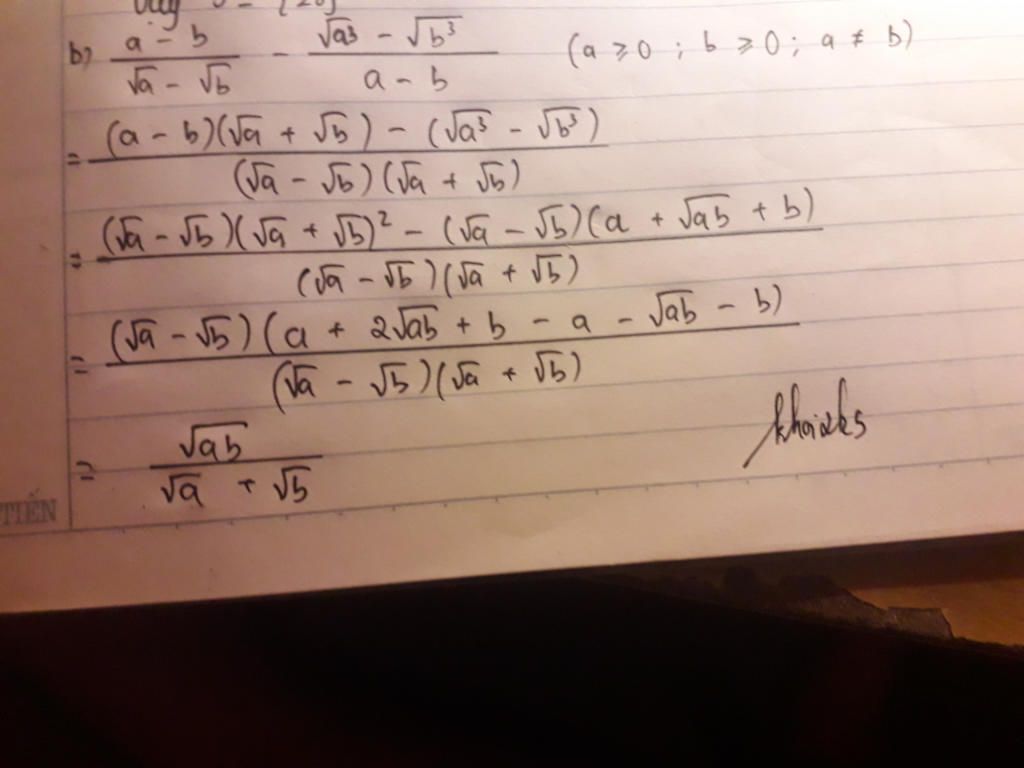 b) \frac{a - b}{\sqrt{a} - \sqrt{b}} - \frac{\sqrt{a^3} - \sqrt{b^3}}{a - b} (a ⩾ 0 ; b ⩾ 0 ; a ≠ b)
= \frac{(a - b)(\sqrt{a} + \sqrt{b}) - (\sqrt{a^3} - \sqrt{b^3})}{(\sqrt{a} - \sqrt{b})(\sqrt{a} + \sqrt{b})}
= \frac{(\sqrt{a} - \sqrt{b})(\sqrt{a} + \sqrt{b})^2 - (\sqrt{a} - \sqrt{b})(a + \sqrt{ab} + b)}{(\sqrt{a} - \sqrt{b})(\sqrt{a} + \sqrt{b})}
= \frac{(\sqrt{a} - \sqrt{b})(a + 2\sqrt{ab} + b - a - \sqrt{ab} - b)}{(\sqrt{a} - \sqrt{b})(\sqrt{a} + \sqrt{b})}
= \frac{\sqrt{ab}}{\sqrt{a} + \sqrt{b}}
TIẾN